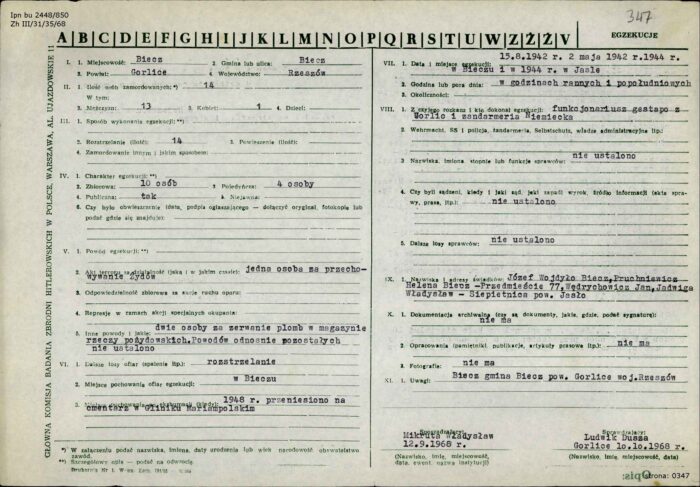 Ipn bu 2448/850
Zh III/31/35/68
347
EGZEKUCJE
A|B|C|D|E|F|G|H|I|J|K|L|M|N|O|P|Q|R|S|T|U|W|Z|Ż|Ź|V
GŁÓWNA KOMISJA BADANIA ZBRODNI HITLEROWSKICH W POLSCE, WARSZAWA, AL. UJAZDOWSKIE 11
I. 1. Miejscowość: Biecz 2. Gmina lub ulica: Biecz
3. Powiat: Gorlice 4. Województwo: Rzeszów
II. 1. Ilość osób zamordowanych:*) 14
W tym:
2. Mężczyzn: 13 3. Kobiet: 1 4. Dzieci:
III. 1. Sposób wykonania egzekucji:**)
2. Rozstrzelanie (ilość): 14 3. Powieszenie (ilość):
4. Zamordowanie innym i jakim sposobem:
IV. 1. Charakter egzekucji:**)
2. Zbiorowa: 10 osób 3. Pojedyńcza: 4 osoby
4. Publiczna: tak 5. Niejawna:
6. Czy było obwieszczenie (data, podpis ogłaszającego — dołączyć oryginał, fotokopię lub
podać gdzie się znajduje):
V. 1. Powód egzekucji:**)
2. Akt terroru za działalność (jaką i w jakim czasie): jedna osoba za przecho-
wywanie Żydów
3. Odpowiedzialność zbiorowa za akcje ruchu oporu:
4. Represje w ramach akcji specjalnych okupanta:
5. Inne powody i jakie: dwie osoby za zerwanie plomb w magazynie
rzeczy pożydowskich.Powodów odnośnie pozostałych
nie ustalono
VI. 1. Dalsze losy ofiar (spalenie itp.): rozstrzelanie
2. Miejsce pochowania ofiar egzekucji: w Bieczu
3. 1948 r. przeniesiono na
cmentarz w Gliniku Mariampolskim
*) W załączeniu podać nazwiska, imiona, daty urodzenia lub wiek narodowość obywatelstwo
zawód.
**) Szczegółowy opis — podać na odwrocie
VII. 1. Data i miejsce egzekucji: 15.8.1942 r. 2 maja 1942 r.1944 r.
w Bieczu i w 1944 r. w Jaśle
2. Godzina lub pora dnia: w godzinach rannych i popołudniowych
3. Okoliczności:
VIII. 1. Z czyjego rozkazu i kto dokonał egzekucji: funkcjonariusz gestapo z
Gorlic i żandarmeria Niemiecka
2. Wehrmacht, SS i policja, żandarmeria, Selbstschutz, władze administracyjne itp.:
3. Nazwiska, imiona stopnie lub funkcje sprawców: nie ustalono
4. Czy byli sądzeni, kiedy i jaki sąd, jaki zapadł wyrok, źródło informacji (akta spra-
wy, prasa, itp.): nie ustalono
5. Dalsze losy sprawców: nie ustalono
IX. 1. Nazwiska i adresy świadków: Józef Wojdyło Biecz,Pruchniewicz
Helena Biecz -Przedmieście 77,Wędrychowicz Jan,Jadwiga
Władysław - Siepietnica pow. Jasło
X. 1. Dokumentacja archiwalna (czy są dokumenty, jakie, gdzie, podać sygnaturę):
nie ma
2. Opracowania (pamiętniki, publikacje, artykuły prasowe itp.): nie ma
3. Fotografie: nie ma
XI. 1. Uwagi: Biecz gmina Biecz pow. Gorlice woj.Rzeszów
Sporządzający:
Mikruta Władysław
12.9.1968 r.
(Nazwisko, imię, miejscowość,
data, ewent. nazwa instytucji)
Sprawdzający:
Ludwik Dusza
Gorlice 10.10.1968 r.
(Nazwisko, imię, miejscowość, data)
Strona: 0347